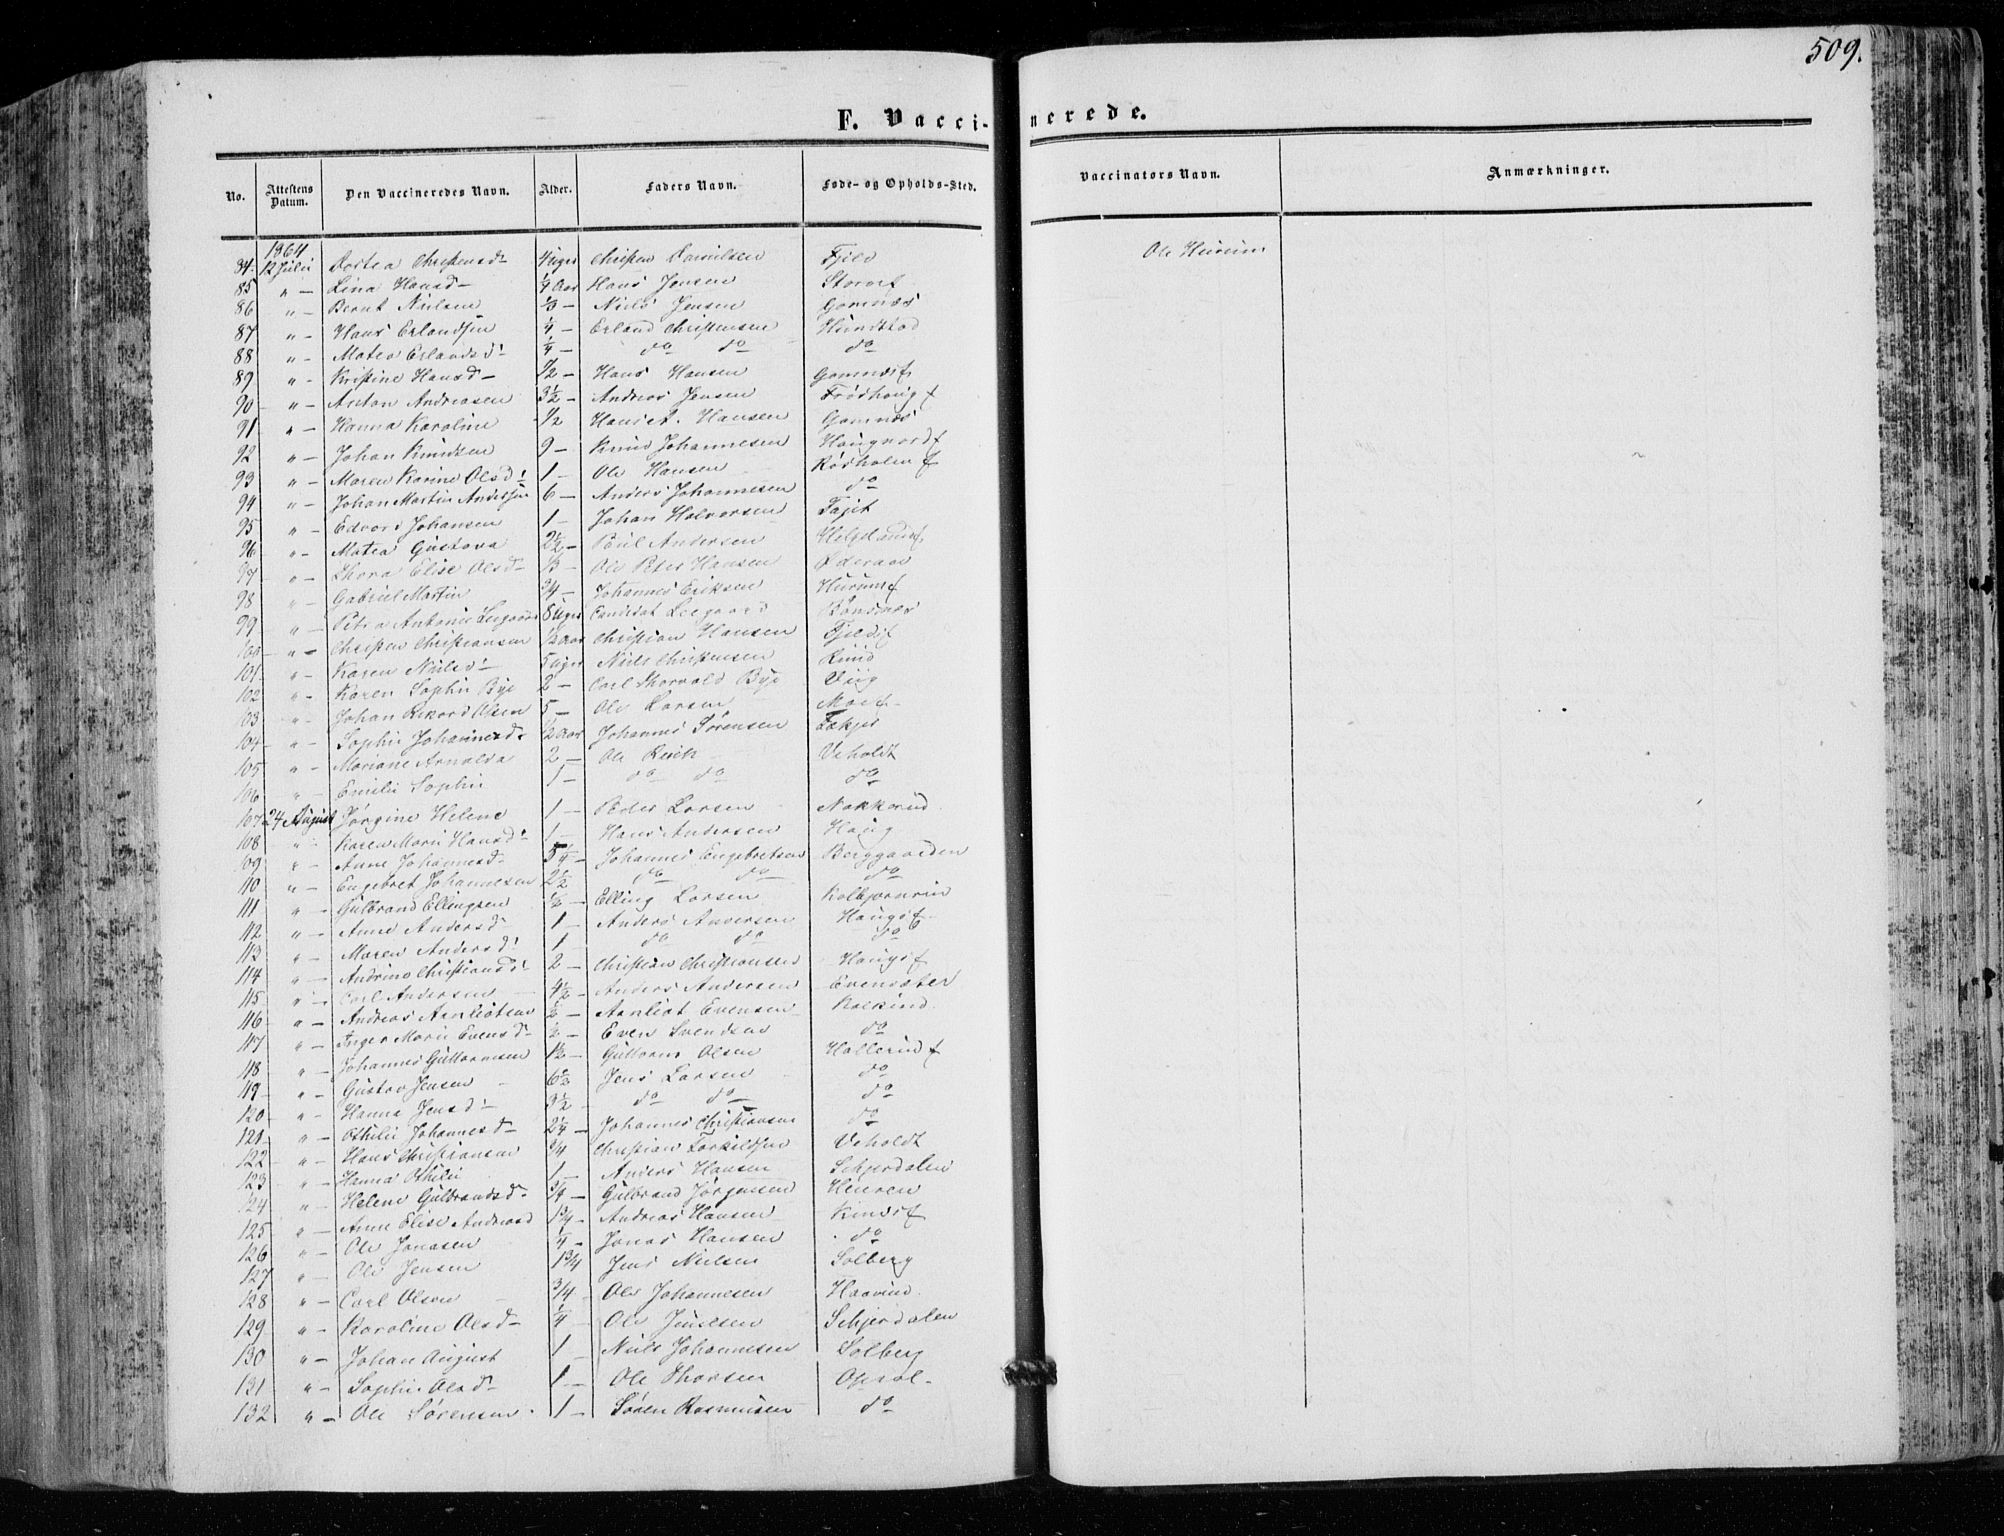 509.
F. Vaccinerede.
No. Attestens Datum. Den Vaccineredes Navn. Alder. Faders Navn. Føde- og Opholds-Sted. Vaccinators Navn. Anmærkninger.
1864
84. 12 Julii Dortea Christensd- 4 Uger Christen Danielsen Fjeld Ole Hurum
85 " - Lina Hansd- 1/4 Aar Hans Jensen
86 " - Bernt Nielsen 1/3 - Niels Jensen Gomnæs
87 " - Hans Erlandsen 1/4 - Erland Christensen Hundstad
88 " - Matea Erlandsd- 1/4 - do do do
89 " - Kristine Hansd- 1/2 - Hans Hansen Gomnæs f
90 " - Anton Andreasen 3 1/2 - Andreas Jensen Frøshoug f
91 " - Hanna Karoline 1/2 Hansen Gomnæs
92 " - Johan Knudsen 9 - Knud Johannesen
93 " - Maren Karine Olsd- 1 - Ole Hansen
94 " - Johan Martin Andersen 6 - Anders Johannesen do
95 " - Edvard Johansen 1 - Johan Halvorsen
96 " - Matea Gustava 2 1/2 - Paul Andersen
97 " - Thora Elise Olsd- 1/3 - Ole Peter Hansen Øderaae
98 " - Gabriel Martin 3/4 - Johannes Eriksen Hurum f
99 " - Petra Antonie Leegaard 8 Uger Candidat Leegaard Bønsnæs
100 " - Christen Christiansen 1/2 Aar Christian Hansen Fjeld f
101 " - Karen Nielsd- 5 Uger Niels Christensen Ruud
102 " - Karen Sophie Bye 2 - Carl Thorvald Bye Viig
103 " - Johan Rikard Olsen 5 - Ole Larsen Moe f
104 " - Sophie Johannesd- 1/2 Aar Johannes Sørensen
105 " - Mariane Arnalda 2 - Ole Veholdt
106 " - Emilie Sophie 1 - do do do
107 24 August Jørgine Helene 1 - Peder Larsen Nakkerud
108 " - Karen Marie Hansd- 1 - Hans Andersen Houg
109 " - Anne Johannesd- 5 1/4 - Johannes Engebretsen Berggaarden
110 " - Engebret Johannesen 2 1/2 do do do
111 " - Gulbrand Ellingsen 1/2 - Elling Larsen Kolbjørnrud
112 " - Anne Andersd- 1 - Anders Andersen Hougs f
113 " - Maren Andersd- 1 - do do do
114 " - Andrine Christiansd- 2 - Christian Christiansen Hougs f
115 " - Carl Andersen 4 1/2 - Anders Andersen Evensæter
116 " - Andreas Aanliotsen 1/2 - Aanliot Evensen
117 " - Inger Marie Evensd- 1/2 - Even Svendsen do
118 " - Johannes Guttormsen 1 1/2 - Guttorm Olsen Hollerud f
119 " - Gustav Jensen 6 1/2 Jens Larsen do
120 " - Hanna Jensd- 3 1/2 - do do do
121 " - Othilie Johannesd- 2 1/4 - Johannes Christiansen do
122 " - Hans Christiansen 3/4 Christian Torkildsen Veholdt
123 " - Hanna Othilie 1 - Anders Hansen Schjerdalen
124 " - Helene Gulbrandsd- 3/4 - Gulbrand Jørgensen Heuren
125 " - Anne Elise Andreasd 1 3/4 - Andreas Hansen
126 " - Ole Jonasen 1/4 - Jonas Hansen do
127 " - Ole Jensen 1 3/4 Jens Nielsen Solberg
128 " - Carl Olsen 3/4 - Ole Johannesen Haarud
129 " - Karoline Olsd- 1/4 - Ole Juulsen Schjerdalen
130 " - Johan August 1 - Niels Johannesen Solberg
131 " - Sophie Olsd- 1 - Ole Thorsen Opsal -
132 " - Ole Sørensen 1 - Søren Rasmussen do